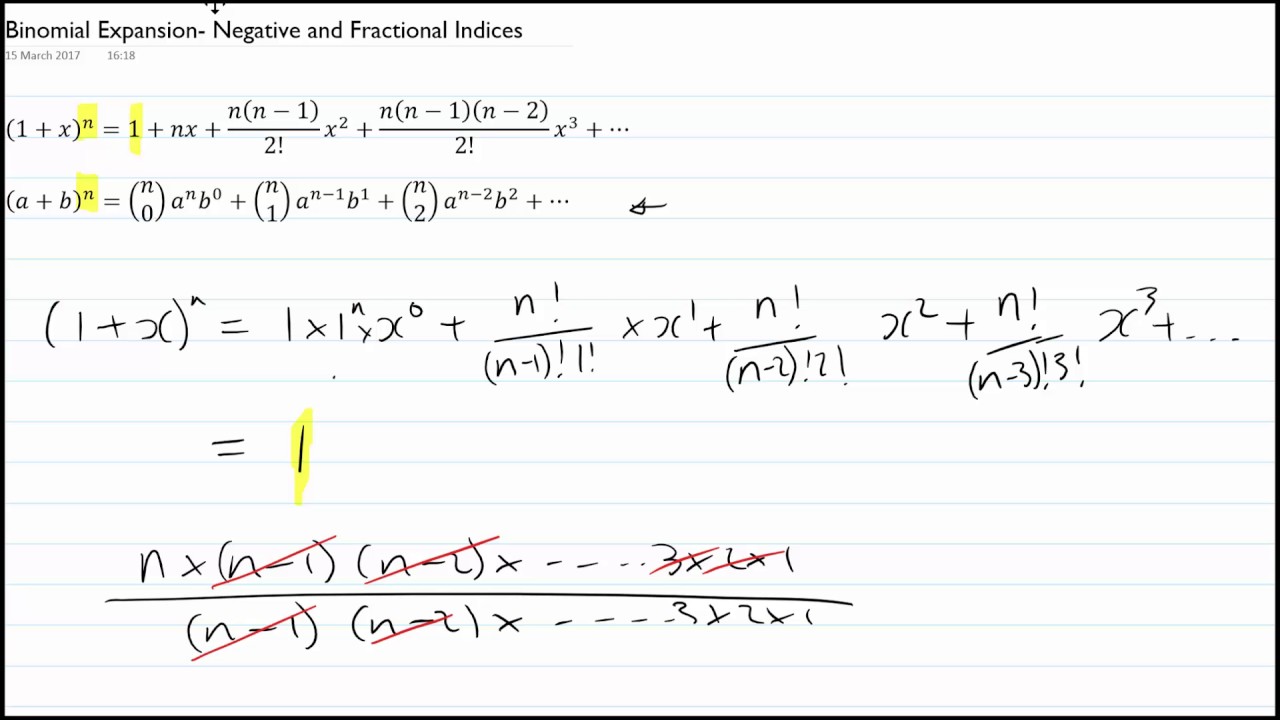 Binomial Expansion- Negative and Fractional Indices
15 March 2017 16:18
(1 + x)ⁿ = 1 + nx + n(n − 1)/2! x² + n(n − 1)(n − 2)/2! x³ + ⋯
(a + b)ⁿ = (n 0) aⁿb⁰ + (n 1) aⁿ⁻¹b¹ + (n 2) aⁿ⁻²b² + ⋯ ←
(1 + x)ⁿ = 1 × 1ⁿ × x⁰ + n!/(n-1)!1! × x¹ + n!/(n-2)!2! x² + n!/(n-3)!3! x³ + ...
= 1
n × (n-1) (n-2) × - - - .. 3×2×1
(n-1) (n-2) × - - - - .. 3×2×1